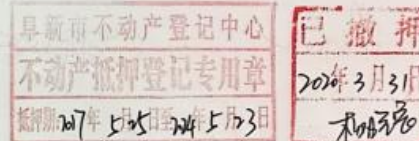 阜新市不动产登记中心
不动产抵押登记专用章
抵押期:2017年5月25日至2024年5月23日
已撤押
2020年3月31日